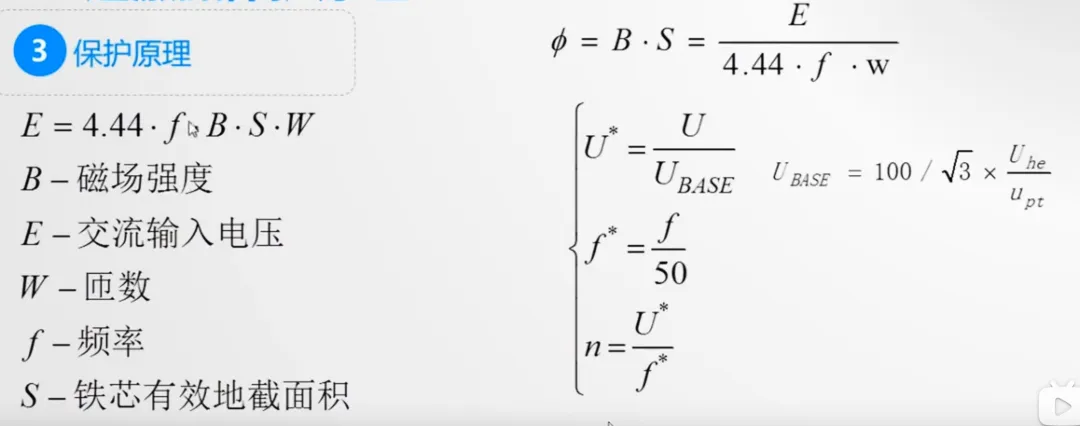 3 保护原理
E = 4.44 · f · B · S · W
B – 磁场强度
E – 交流输入电压
W – 匝数
f – 频率
S – 铁芯有效地截面积
ϕ = B · S = E / (4.44 · f · w)
U* = U / U_BASE
U_BASE = 100 / √3 × U_he / u_pt
f* = f / 50
n = U* / f*